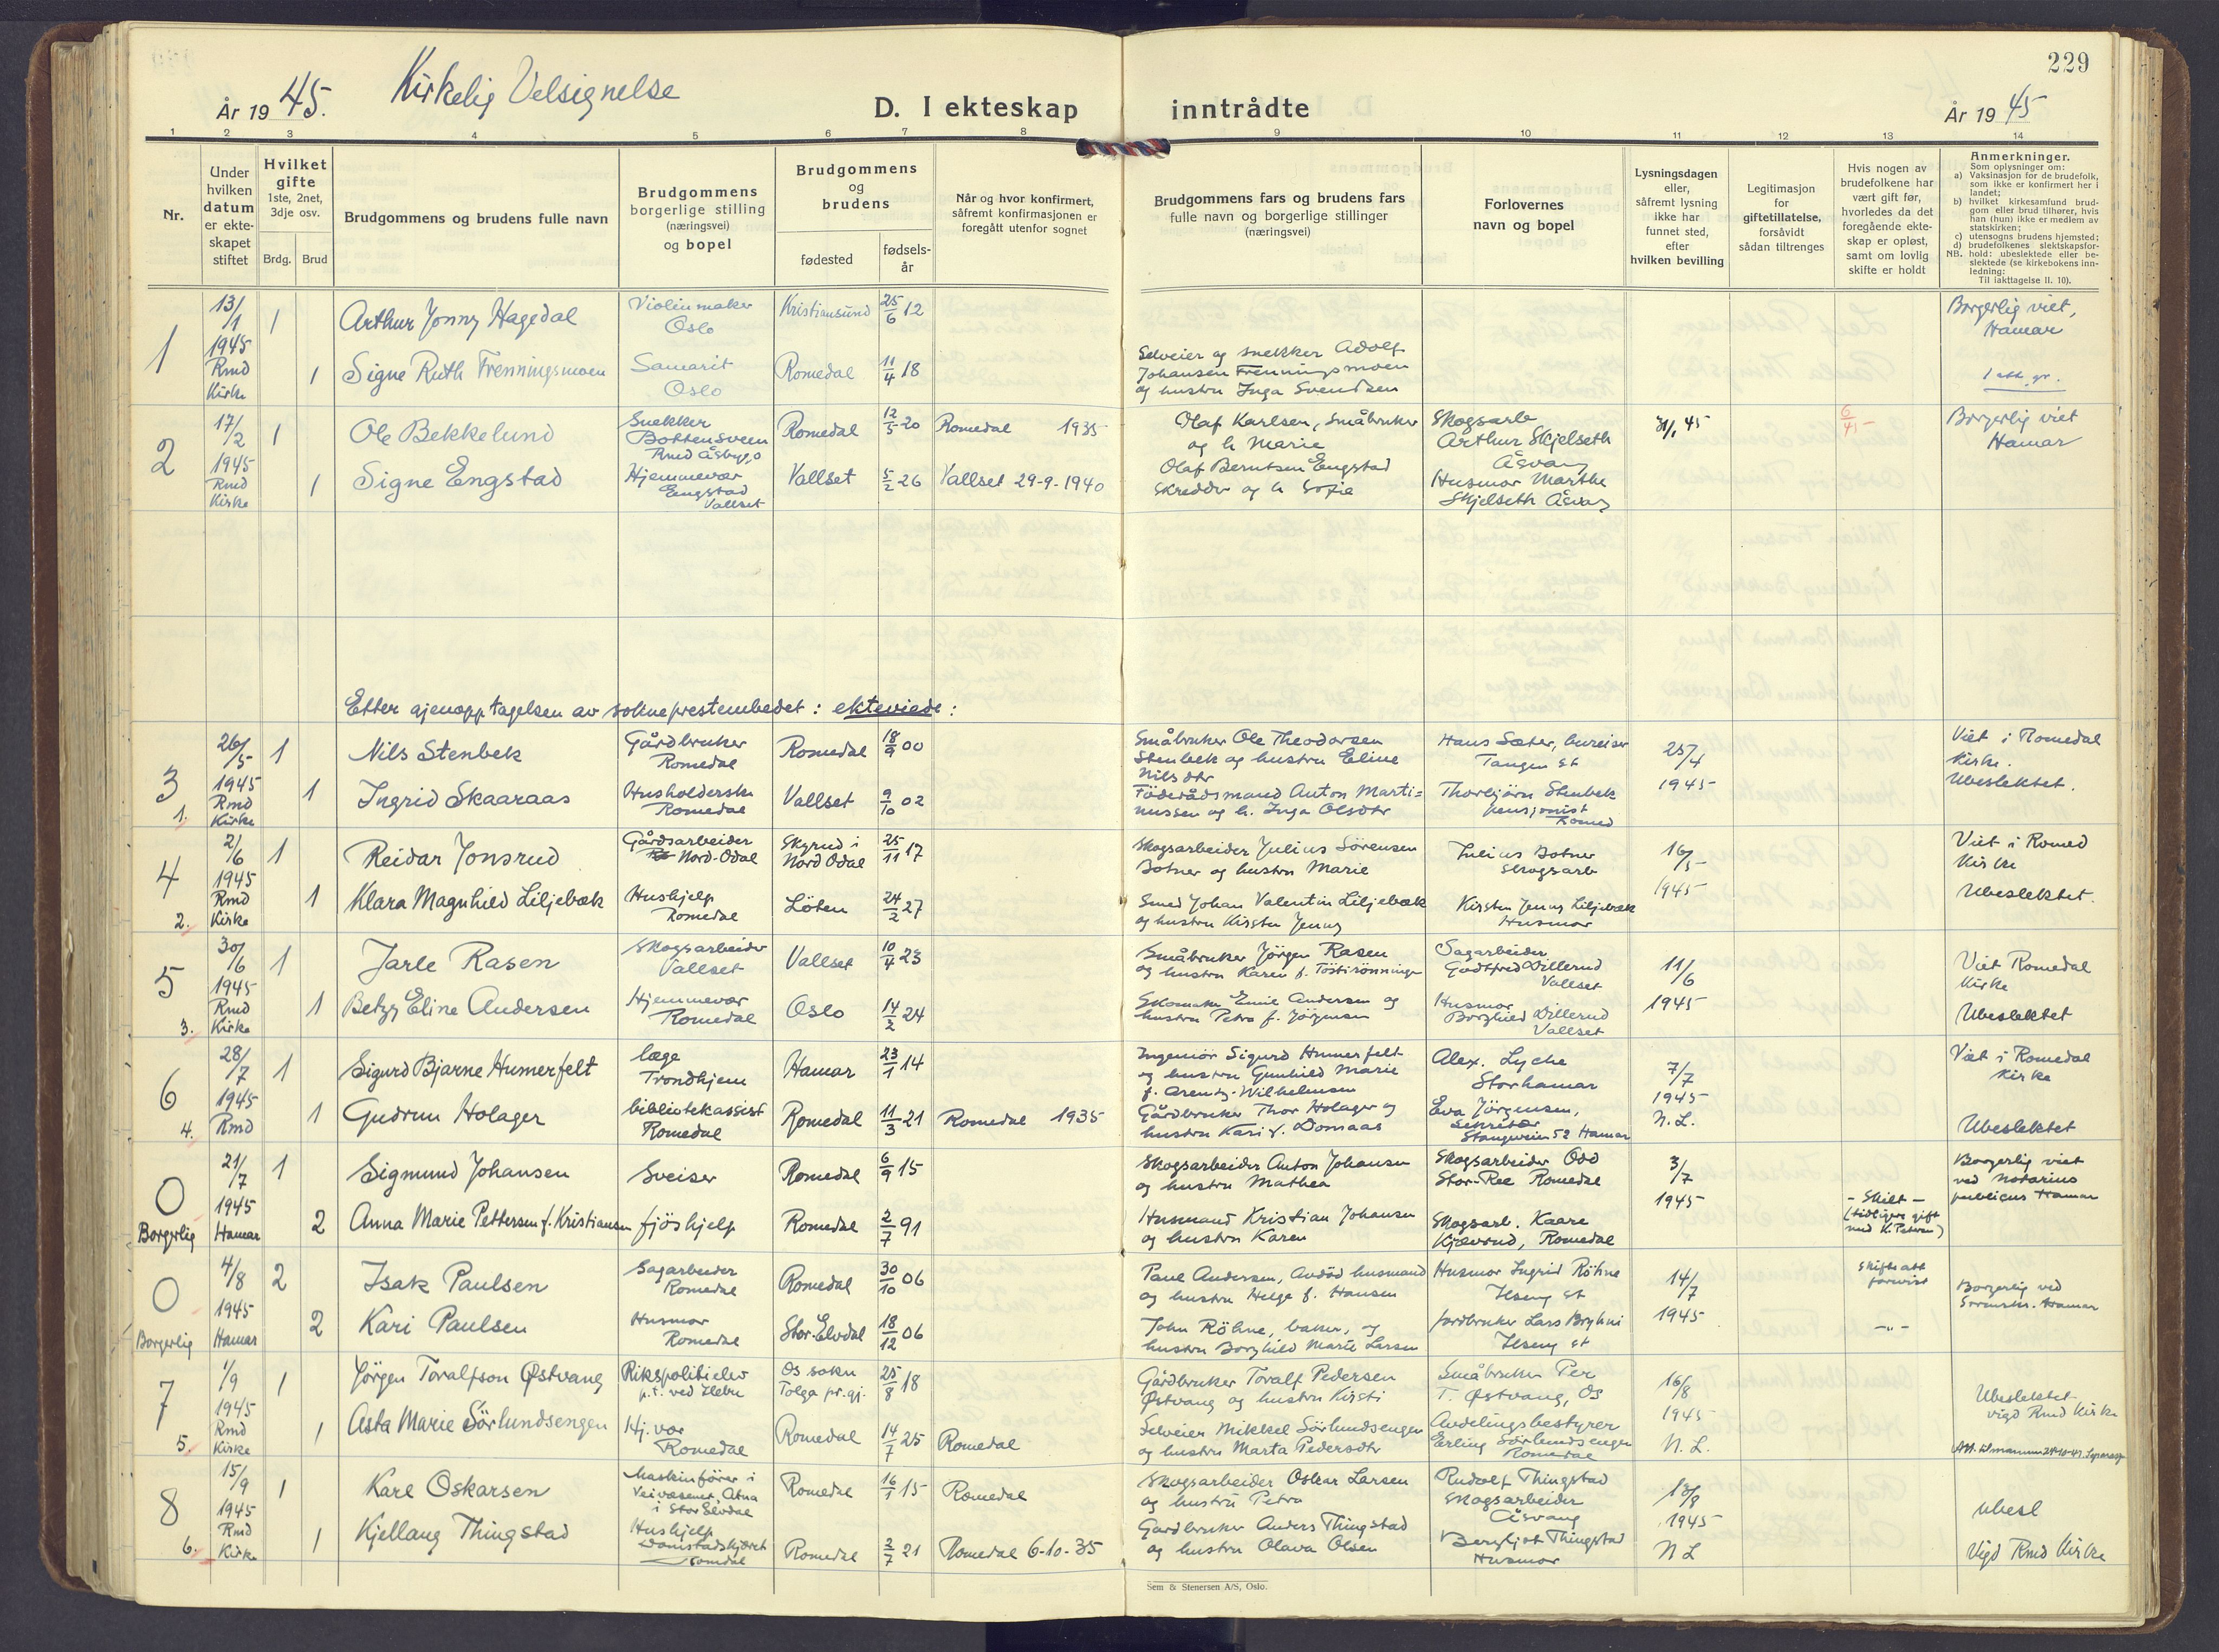 229
År 1945. Kirkelig Velsignelse D. I ekteskap inntrådte År 1945
1 2 3 4 5 6 7 8 9 10 11 12 13 14
Nr.
Under
hvilken
datum
er ekte-
skapet
stiftet
Hvilket
gifte
1ste, 2net,
3dje osv.
Brdg. Brud
Brudgommens og brudens fulle navn
Brudgommens
borgerlige stilling
(næringsvei)
og bopel
Brudgommens
og
brudens
fødested
fødsels-
år
Når og hvor konfirmert,
såfremt konfirmasjonen er
foregått utenfor sognet
Brudgommens fars og brudens fars
fulle navn og borgerlige stillinger
(næringsvei)
Forlovernes
navn og bopel
Lysningsdagen
eller,
såfremt lysning
ikke har
funnet sted,
efter
hvilken bevilling
Legitimasjon
for
giftetillatelse,
forsåvidt
sådan tiltrenges
Hvis nogen av
brudefolkene har
vært gift før,
hvorledes da det
foregående ekte-
skap er opløst,
samt om lovlig
skifte er holdt
Anmerkninger.
Som oplysninger om:
a) Vaksinasjon for de brudefolk,
som ikke er konfirmert her i
landet;
b) hvilket kirkesamfund brud-
gom eller brud tilhører, hvis
han (hun) ikke er medlem av
statskirken;
c) utensogns brudens hjemsted;
d) brudefolkenes slektskapsfor-
NB. hold: ubeslektede eller be-
slektede (se kirkebokens inn-
ledning:
Til iakttagelse II. 10).
1
13/1
1945
Rmd
Kirke
1 Arthur Jonny Hagedal
Violinmaker
Oslo
Kristiansund 25/6 12
Borgerlig viet,
Hamar
1 Signe Ruth Frenningsmoen
Samarit
Oslo
Romedal 11/4 18
Selveier og snekker Adolf
Johansen Frenningsmoen
og hustru Inga Svendsen
2
17/2
1945
Rmd
Kirke
1 Ole Bekkelund
Snekker
Bottensveen
Rmd Åsbygd
Romedal 12/5 20 Romedal 1935
Olaf Karlsen, Småbruker
og h Marie
Skogsarb
Arthur Skjelseth
Åsvang
45
6/45
Borgerlig viet
Hamar
1 Signe Engstad
Hjemmevær
Engstad
Vallset
Vallset 5/2 26 Vallset 29-9-1940
Olaf Berntsen Engstad
Skredder og h Sofie
Husmor Marthe
Skjelseth Åsvang
Etter gjenopptagelsen av sokneprestembedet: ekteviede:
3
1.
26/5
1945
Rmd
Kirke
1 Nils Stenbek
Gårdbruker
Romedal
Romedal 18/9 00
Småbruker Ole Theodorsen
Stenbek og hustru Eline
Nilsdtr
Hans Sæter, bureiser
Tangen st
25/4
1945
Viet i Romedal
Kirke.
Ubeslektet.
1 Ingrid Skaaraas
Husholderske
Romedal
Vallset 9/10 02
Föderådsmand Anton Marti=
nussen og h. Inga Olsdtr
Thorbjörn Stenbek
pensjonist
Romed
4
2.
2/6
1945
Rmd
Kirke
1 Reidar Jonsrud
Gårdsarbeider
Nord-Odal
Skyrud i
Nord Odal
25/11 17
Skogsarbeider Julius Sörensen
Botner og hustru Marie
Julius Botner
Skogsarb
16/5
1945
Viet i Romed
Kirke
Ubeslektet.
1 Klara Magnhild Liljebæk
Hushjelp
Romedal
Löten 24/2 27
Smed Johan Valentin Liljebæk
og hustru Kirsten Jenny
Kirsten Jenny Liljebæk
Husmor
5
3.
30/6
1945
Rmd
Kirke
1 Jarle Rasen
Skogsarbeider
Vallset
Vallset 10/4 23
Småbruker Jörgen Rasen
og hustru Karen f. Töstirönningen
Sagarbeider
Godtfred Dillerud
Vallset
11/6
1945
Viet Romedal
Kirke
Ubeslektet
1 Betzy Eline Andersen
Hjemmevær
Romedal
Oslo 14/2 24
Skomaker Emil Andersen og
hustru Petra f. Jörgensen
Husmor
Borghild Dillerud
Vallset
6
4.
28/7
1945
Rmd
1 Sigurd Bjarne Humerfelt
læge
Trondhjem
Hamar 23/1 14
Ingeniör Sigurd Humerfelt
og hustru Gunhild Marie
f. Arentz-Wilhelmsen
Alex. Lyche
Storhamar
7/7
1945
N.L.
Viet i Romedal
Kirke
Ubeslektet
1 Gudrun Holager
bibliotekassist
Romedal
Romedal 11/3 21 Romedal 1935
Gårdbruker Thor Holager og
hustru Kari f. Domaas
Eva Jörgensen,
sekretær
Stangeveien 52 Hamar
0
Borgerlig
21/7
1945
Hamar
1 Sigmund Johansen
Sveiser
Romedal 6/9 15
Skogsarbeider Anton Johansen
og hustru Mathea
Skogsarbeider Odd
Stor-Ree Romedal
3/7
1945
Borgerlig viet
ved notarius
publicus Hamar
2 Anna Marie Pettersen f. Kristiansen
fjöshjelp
Romedal 2/7 91
Husmand Kristian Johansen
og hustru Karen
Skogsarb. Kaare
Kjæverud, Romedal
- Skilt -
(tidligere gift
med K. Petersen)
0
Borgerlig
4/8
1945
Hamar
2 Isak Paulsen
Sagarbeider
Romedal
Romedal 30/10 06
Paul Andersen, avdöd husmand
og hustru Helga f. Hansen
Husmor Ingrid Röhne
Ilseng st
14/7
1945
Skifteatt
forevist
Borgerlig ved
Sorenskr. Hamar
2 Kari Paulsen
Husmor
Romedal
Stor-Elvdal 18/12 06
John Röhne, baker, og
hustru Borghild Marie Larsen
Jordbruker Lars Bryhni
Ilseng st
-"-
7
5.
1/9
1945
Rmd
Kirke
1 Jörgen Toralfson Østvang
Rikspolitielev
p.t. ved Ilebu
Os sokn
Tolga pr.gj.
25/8 18
Gårdbruker Toralf Pedersen
Østvang og hustru Kirsti
Småbruker Per
T. Østvang, Os
16/8
1945
N.L.
Ubeslektet
vigd Rmd Kirke
1 Asta Marie Sörlundsengen
Hj. vær
Romedal
Romedal 14/7 25 Romedal
Selveier Mikkel Sörlundsengen
og hustru Marta Pedersdtr
Avdelingsbestyrer
Erling Sörlundsengen
Romedal
8
6.
15/9
1945
Rmd
Kirke
1 Karl Oskarsen
Maskinförer i
Veivæsenet, Atna
i Stor Elvdal
Romedal 16/1 15 Romedal
Skogsarbeider Oskar Larsen
og hustru Petra
Rudolf Thingstad
Skogsarbeider
Åsvang
1945
N L
ubesl
Vigd Rmd Kirke
1 Kjellaug Thingstad
Hushjelp
Romedal
Romedal 2/7 21 Romedal 6-10-35
Gardbruker Anders Thingstad
og hustru Olava Olsen
Bergljot Thingstad
Husmor
Sem & Stenersen A/S, Oslo.